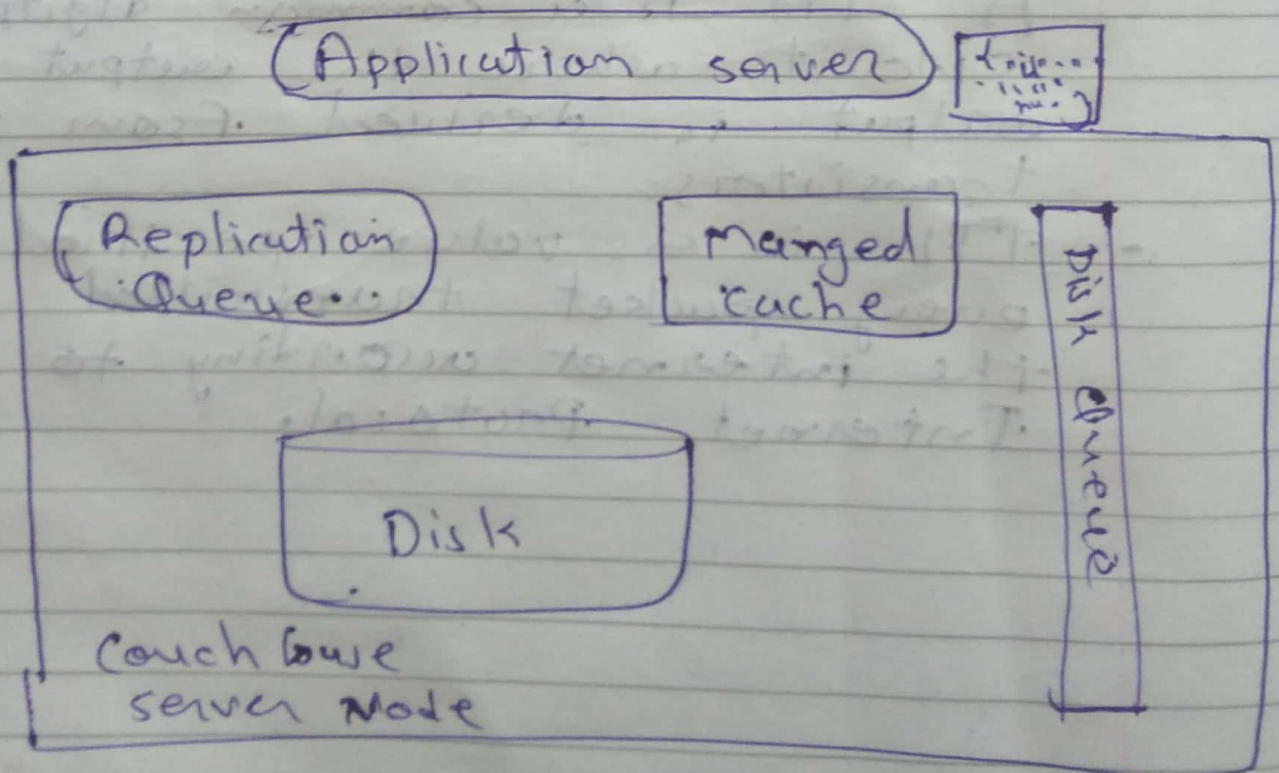 Application server
Replication
Queue
Manged
cache
Disk Queue
Disk
Couch base
server Node